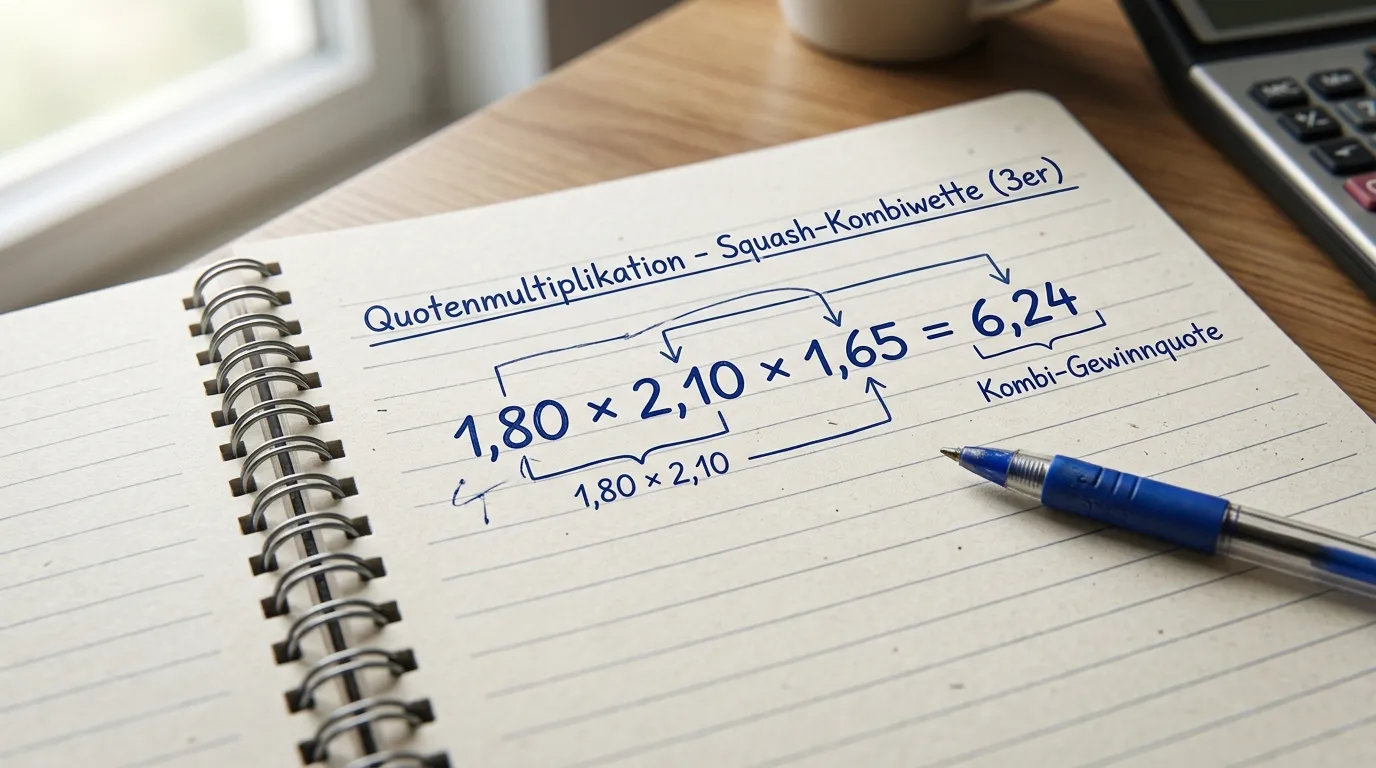 Quotenmultiplikation - Squash-Kombiwette (3er)
1,80 × 2,10 × 1,65 = 6,24
Kombi-Gewinnquote
1,80 × 2,10